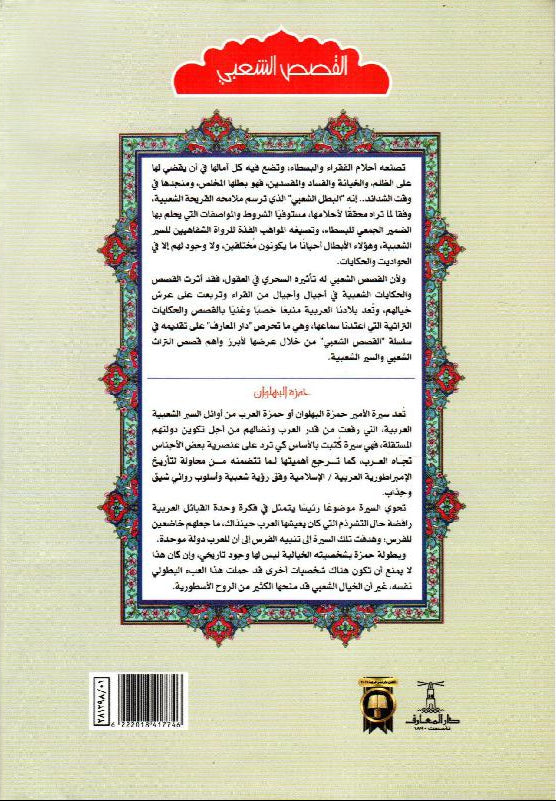 القصص الشعبي
تصنعه أحلام الفقراء والبسطاء، وتضع فيه كل آمالها في أن يقضي لها
على الظلم، والخيانة والفساد والمفسدين، فهو بطلها المخلص، ومنجدها في
وقت الشدائد.. إنه "البطل الشعبي" الذي ترسم ملامحه القريحة الشعبية،
وفقا لما تراه محققا لأحلامها، مستوفيًا الشروط والمواصفات التي يحلم بها
الضمير الجمعي للبسطاء، وتصيغه المواهب الفذة للرواة الشفاهيين للسير
الشعبية، وهؤلاء الأبطال أحيانًا ما يكونون مُختلقين، ولا وجود لهم إلا في
الحواديت والحكايات.
ولأن القصص الشعبي له تأثيره السحري في العقول، فقد أثرت القصص
والحكايات الشعبية في أجيال وأجيال من القراء وتربعت على عرش
خيالهم، وتُعد بلادنا العربية منبعًا خصبًا وغنيًا بالقصص والحكايات
التراثية التي اعتدنا سماعها، وهي ما تحرص "دار المعارف" على تقديمه في
سلسلة "القصص الشعبي" من خلال عرضها لأبرز وأهم قصص التراث
الشعبي والسير الشعبية.
حمزة البهلوان
تُعد سيرة الأمير حمزة البهلوان أو حمزة العرب من أوائل السير الشعبية
العربية، التي رفعت من قدر العرب ونضالهم من أجل تكوين دولتهم
المستقلة، فهي سيرة كُتبت بالأساس كي ترد على عنصرية بعض الأجناس
تجاه العرب، كما ترجع أهميتها لما تتضمنه من محاولة لتأريخ
الإمبراطورية العربية / الإسلامية وفق رؤية شعبية وأسلوب روائي شيق
وجذاب.
تحوي السيرة موضوعًا رئيسًا يتمثل في فكرة وحدة القبائل العربية
رافضة حال التشرذم التي كان يعيشها العرب حينذاك، ما جعلهم خاضعين
للفرس؛ وهدفت تلك السيرة إلى تنبيه الفرس إلى أن للعرب دولة موحدة.
وبطولة حمزة بشخصيته الخيالية ليس لها وجود تاريخي، وإن كان هذا
لا يمنع أن تكون هناك شخصيات أخرى قد حملت هذا العبء البطولي
نفسه، غير أن الخيال الشعبي قد منحها الكثير من الروح الأسطورية.
٢٨١٢٩٨/٠١
6 222018 417746
دار المعارف
تأسست ١٨٩٠